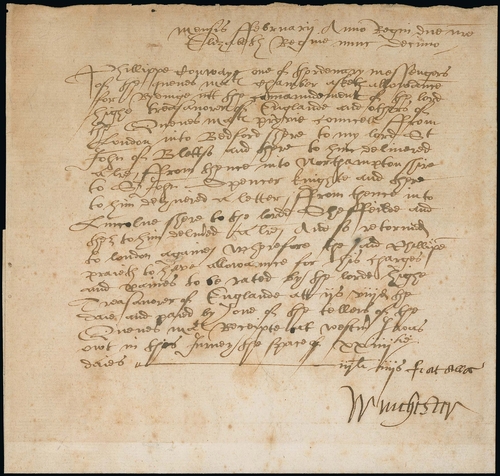 mensis ffebruarij Anno Regni dne nre
Elizabeth Regine nunc Decimo
Phillippe Conway one of thordenary messengers
of the quenes mats chamber asketh allowance
for rydinge att the comaundement of the lord
highe treasaurer of Englande and others of
the Quenes mats privie counsell ffrom
London into Bedford shere to my lord St
John of Bletso and there to him delivered
a lre, ffrom thence into Northamptonshire
to Sr John Spencer knighte and there
to him delyvered a letter, ffrom thence into
Lincolne shere to the lord Sheffeilde and
ther to him delived a lre And so retorned
to london againe, wherefore the said Phillipe
praieth to have allowance for his charges
and paines to be rated by the lorde highe
Treasaurer of Englande att ijs viijd the
daie, and paied by one of the tellers of the
Quenes mats Receipte at westm, I was
owt in this Jurney the space of xxiiij
daies
iijli iiijs fiat allo
Winchester